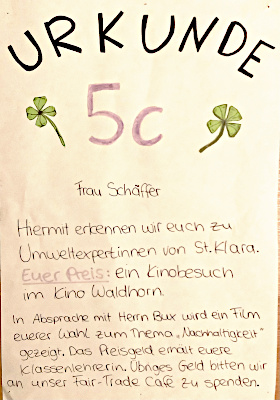 URKUNDE
5c
Frau Schäffer
Hiermit erkennen wir euch zu
Umweltexpertinnen von St. Klara.
Euer Preis: ein Kinobesuch
im Kino Waldhorn.
In Absprache mit Herrn Bux wird ein Film
eurer Wahl zum Thema „Nachhaltigkeit"
gezeigt. Das Preisgeld erhält eure
Klassenlehrerin. Übriges Geld bitten wir
an unser Fair-Trade Café zu spenden.